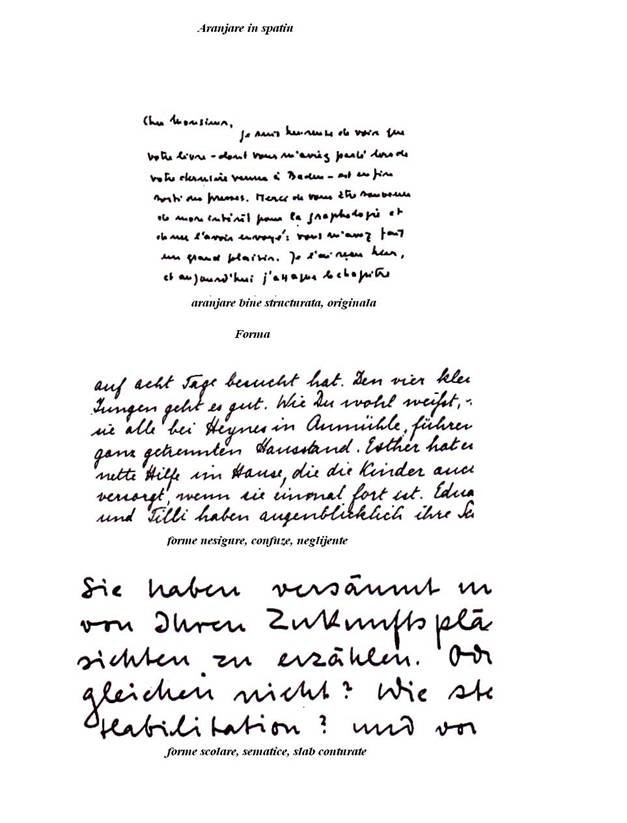 Aranjare in spatiu
Cher Monsieur,
je suis heureuse de voir que
votre livre - dont vous m'aviez parlé lors de
votre dernière venue à Baden - est en fin
sorti des presses. Merci de vous être souvenu
de mon intérêt pour la graphologie et
de me l'avoir envoyé: vous m'avez fait
un grand plaisir. Je l'ai reçu hier,
et aujourd'hui j'attaque le chapitre
aranjare bine structurata, originala
Forma
auf acht Tage besucht hat. Den vier klei
Jungen geht es gut. Wie Du wohl weißt, -
sie alle bei Heynes in Aumühle, führen
ganz getrennten Hausstand. Esther hat e
nette Hilfe im Hause, die die Kinder auch
versorgt, wenn sie einmal fort ist. Edua
und Tilli haben augenblicklich ihre Sc
forme nesigure, confuze, neglijente
Sie haben versäumt m
von Ihren Zukunftsplä
sichten zu erzählen. Od
gleichen nicht? Wie ste
Habilitation? und vor
forme scolare, sematice, slab conturate